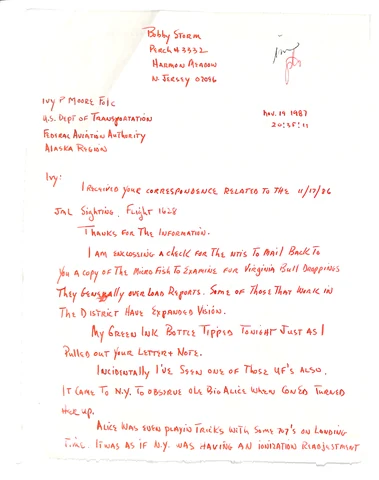 Bobby Storm
Perch # 3532
Harmon Meadow
N. Jersey 07096
Ivy P Moore FOIC
U.S. Dept of Transportation
Federal Aviation Authority
Alaska Region
Nov. 19 1987
20:58:11
Ivy:
I received your correspondence related to the 11/17/86
JAL Sighting, Flight 1628
Thanks for the information.
I am enclosing a check for the NTIS to mail back to
you a copy of the micro fish to examine for Virginia Bull Droppings
They generally over load reports. Some of those that work in
the District have expanded vision.
My green ink bottle tipped tonight just as I
pulled out your letter & note.
Incidentally I've seen one of those UF's also.
It came to N.Y. to observe ole Big Alice when ConEd turned
her up.
Alice was even playin tricks with some 707's on landing
time. It was as if N.Y. was having an ionization readjustment